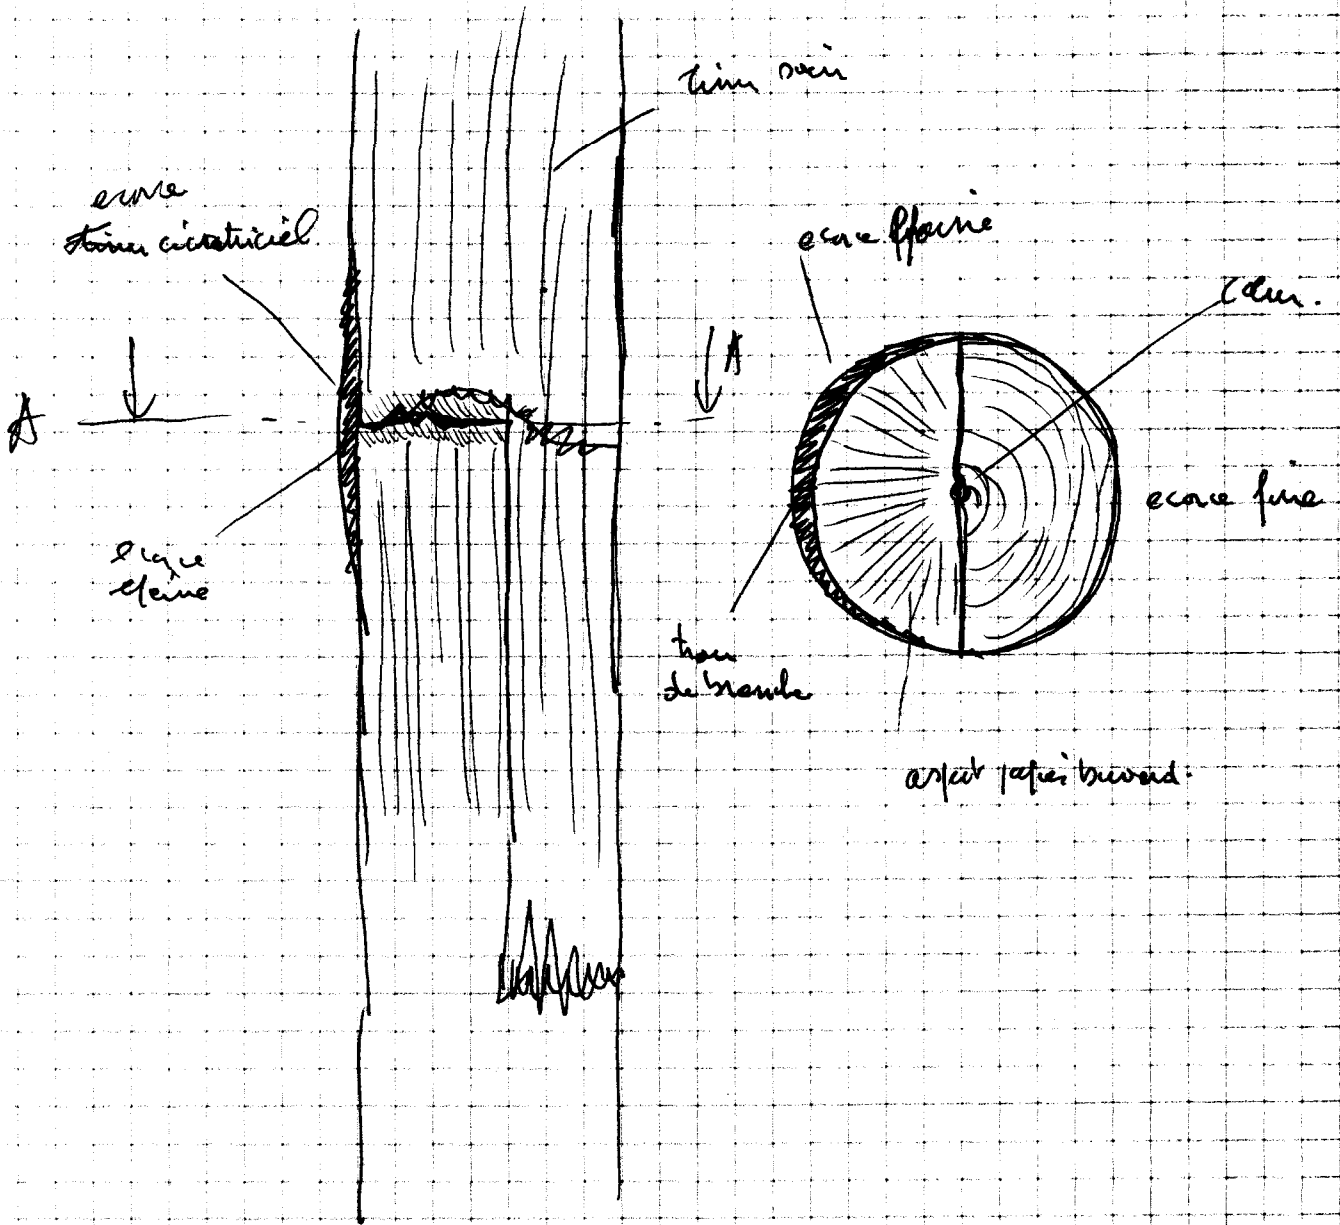 tissu sain
ecorce
tissu cicatriciel
ecorce épaissie
cœur.
A
A
ecorce fine
trace
de branche
aspect papier buvard.